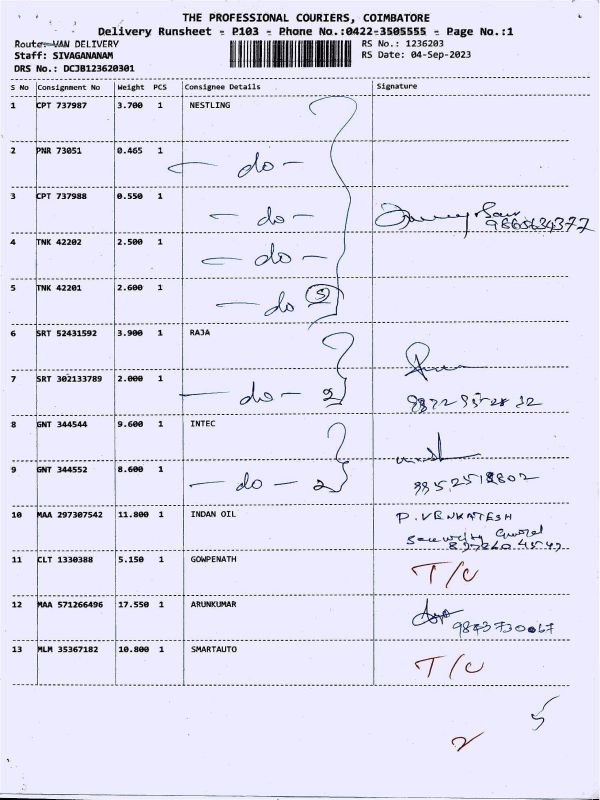 THE PROFESSIONAL COURIERS, COIMBATORE
Delivery Runsheet - P103 - Phone No.:0422-3505555 - Page No.:1
Route: VAN DELIVERY
RS No.: 1236203
Staff: SIVAGANANAM
RS Date: 04-Sep-2023
DRS No.: DCJB123620301
S No Consignment No Weight PCS Consignee Details Signature
1 CPT 737987 3.700 1 NESTLING
2 PNR 73051 0.465 1 — do —
3 CPT 737988 0.550 1 — do —
9865634377
4 TNK 42202 2.500 1 — do —
5 TNK 42201 2.600 1 — do 5
6 SRT 52431592 3.900 1 RAJA
7 SRT 302133789 2.000 1 — do — 2
8 GNT 344544 9.600 1 INTEC
9 GNT 344552 8.600 1 — do — 2
10 MAA 297307542 11.800 1 INDAN OIL P. VENKATESH
Security
11 CLT 1330388 5.150 1 GOWPENATH T/C
12 MAA 571266496 17.550 1 ARUNKUMAR
9843730067
13 MLM 35367182 10.800 1 SMARTAUTO T/C
5
2